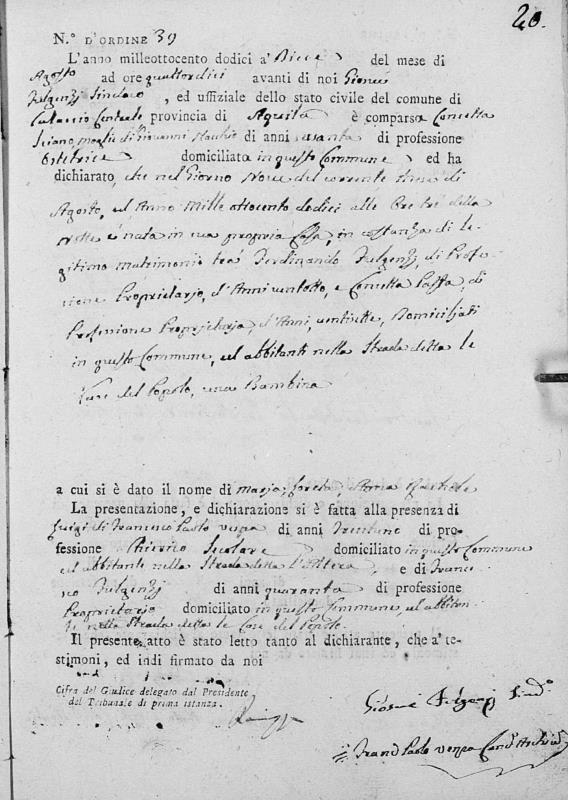 20.
N.° D'ORDINE 39
L'anno milleottocento dodici a' Diece del mese di
Agosto ad ore quattordici avanti di noi Giosuè
Fulgenzj Sindaco, ed uffiziale dello stato civile del comune di
Centrale provincia di Aquila è comparsa Concetta
Moglie di Giovanni di anni di professione
Ostetrice domiciliata in questo Commune ed ha
dichiarato, che nel Giorno Nove del corrente Mese di
Agosto, ed Anno Mille ottocento dodici alle Ore tri della
Notte è nata in sua propria Casa, in costanza di le-
gitimo matrimonio tra Ferdinando Fulgenzj, di Profes-
sione Proprietario, d'Anni ventotto, e Concetta di
Professione Proprietaria, d'Anni, ventisette, Domiciliati
in questo Commune, ed abbitanti nella Strada detta le
Case del Popolo, una Bambina
a cui si è dato il nome di Maria, Loreta, Anna
La presentazione, e dichiarazione si è fatta alla presenza di
Luigi di Francesco Paolo Vespa di anni Trentuno di pro-
fessione Chierico Scolare domiciliato in questo Commune
ed abbitante nella Strada detta, e di Franc-
Fulgenzj di anni quaranta di professione
Proprietario domiciliato in questo Commune, ed abbitan-
te nella Strada detta le Case del Popolo.
Il presente atto è stato letto tanto al dichiarante, che a' te-
stimoni, ed indi firmato da noi
Cifra del Giudice delegato dal Presidente
del Tribunale di prima istanza.
Giosuè Fulgenzj Sind.°
Franc.° Paolo Vespa Canc.